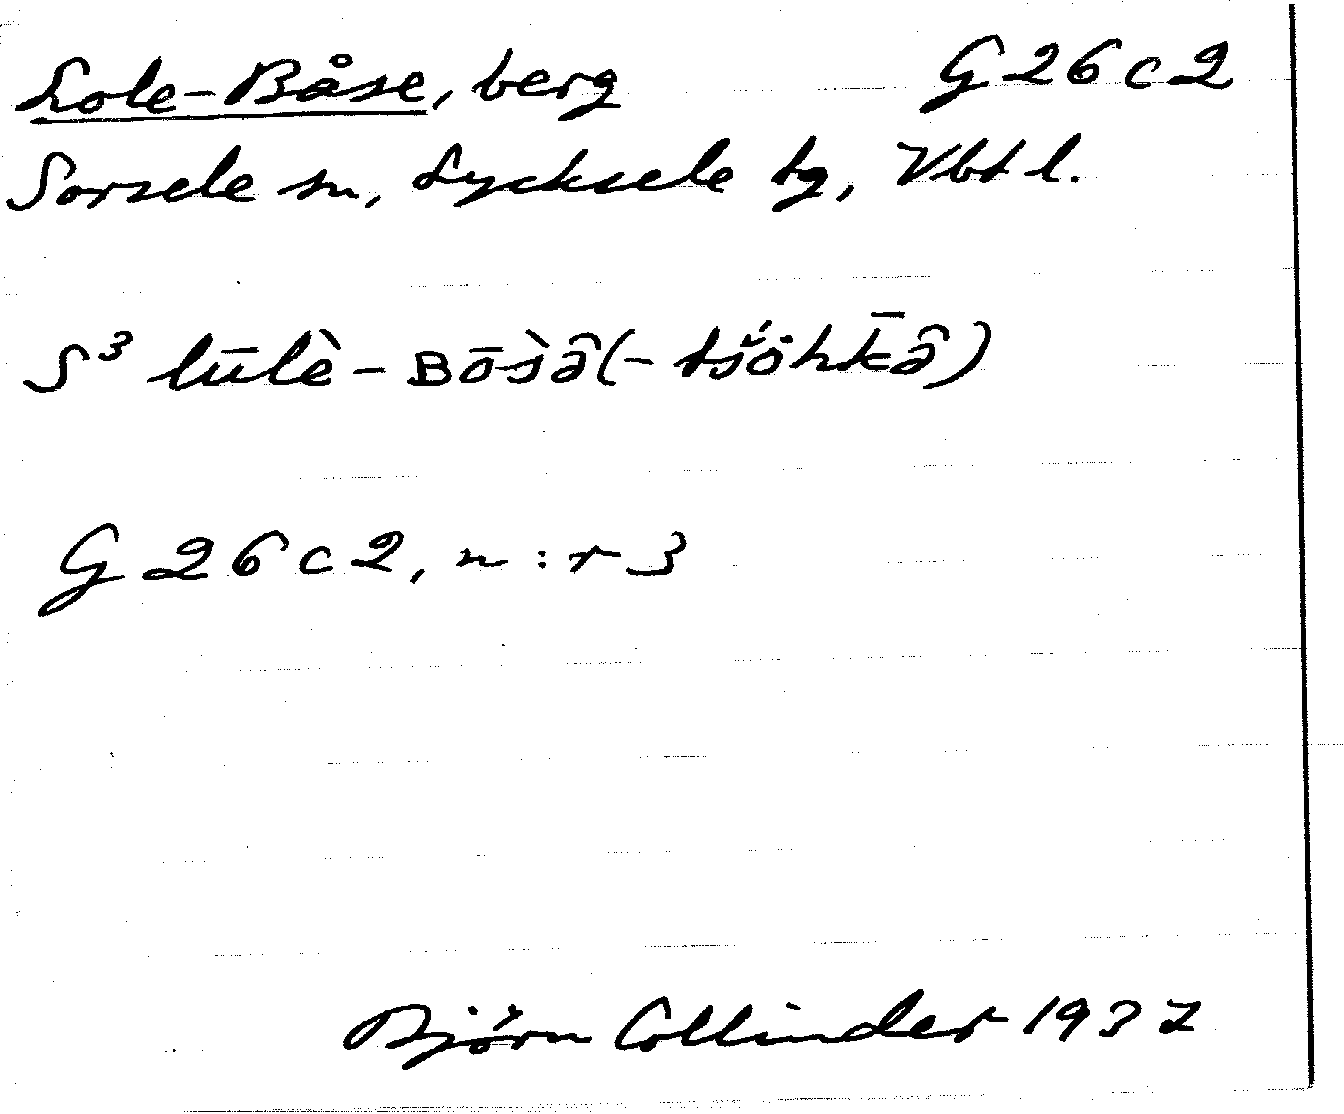 Lole-Båse, berg G 26 c 2
Sorsele sn, Lycksele tg, Vbt l.
S³ lūlè-ʙōs̀â(-tśŏ́hk̄â)
G 26 c 2, n:r 3
Björn Collinder 1937